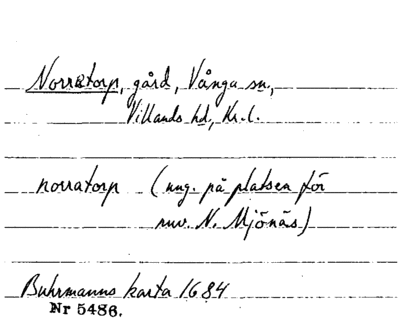 Norratorp, gård, Vånga sn,
Villands hd, Kr.l.
norratorp (ung. på platsen för
nuv. N. Mjönäs)
Buhrmanns karta 1684
Nr 5486.